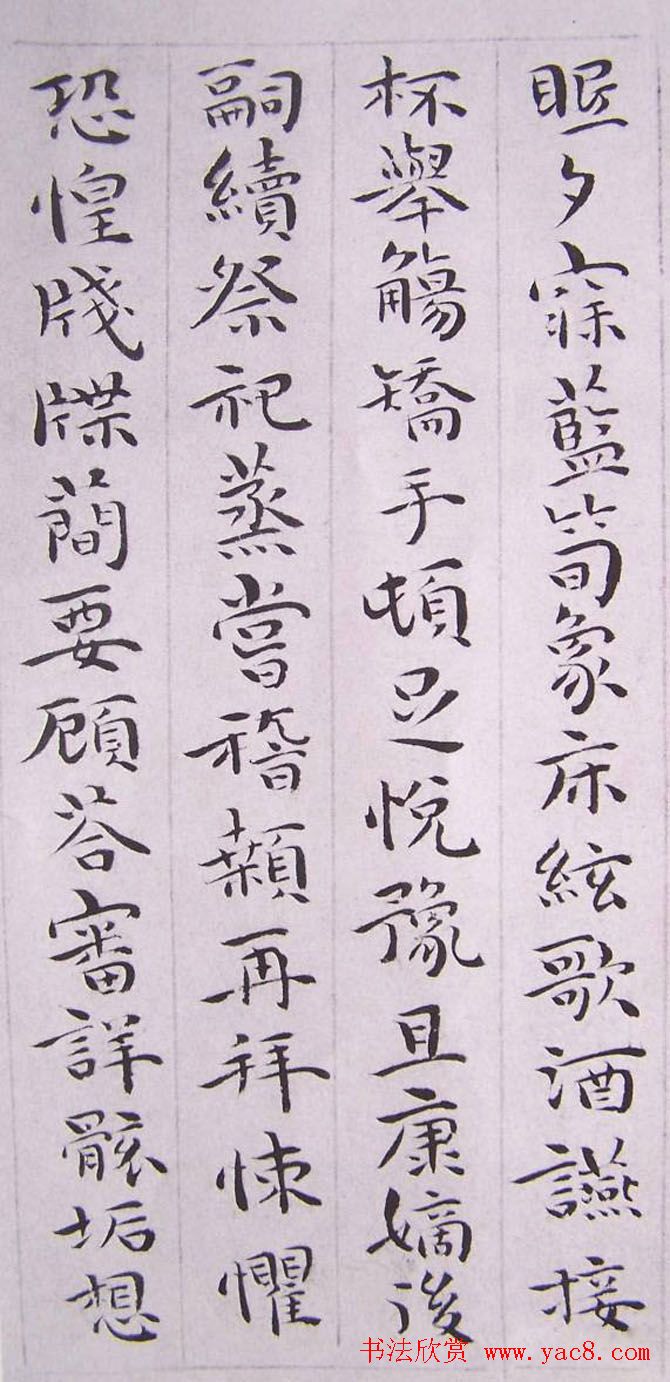 眠夕寐藍筍象床絃歌酒讌接
杯舉觴矯手頓足悅豫且康嫡後
嗣續祭祀蒸嘗稽顙再拜悚懼
恐惶牋牒簡要顧答審詳骸垢想
书法欣赏 www.yac8.com